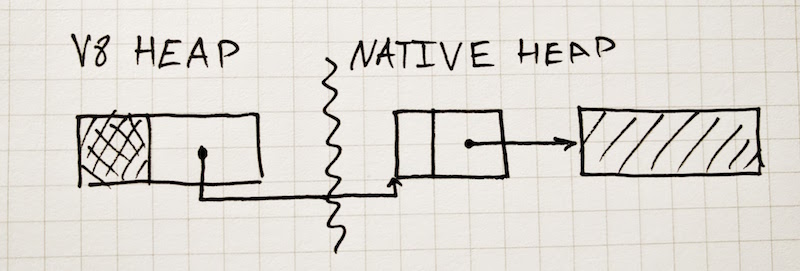 V8 HEAP
NATIVE HEAP